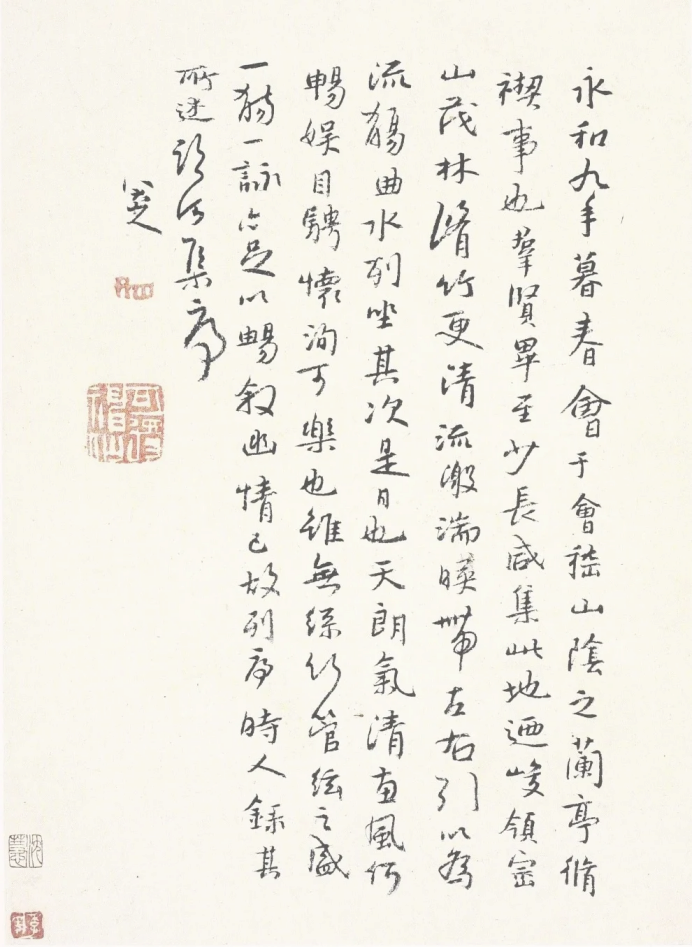 永和九年暮春會于會稽山陰之蘭亭脩
禊事也羣賢畢至少長咸集此地迺峻領崇
山茂林脩竹更清流激湍暎帶左右引以為
流觴曲水列坐其次是日也天朗氣清惠風和
暢娛目騁懷洵可樂也雖無絲竹管絃之盛
一觴一詠亦足以暢敘幽情已故列序時人錄其
所述臨河集序
八大山人
可得神仙